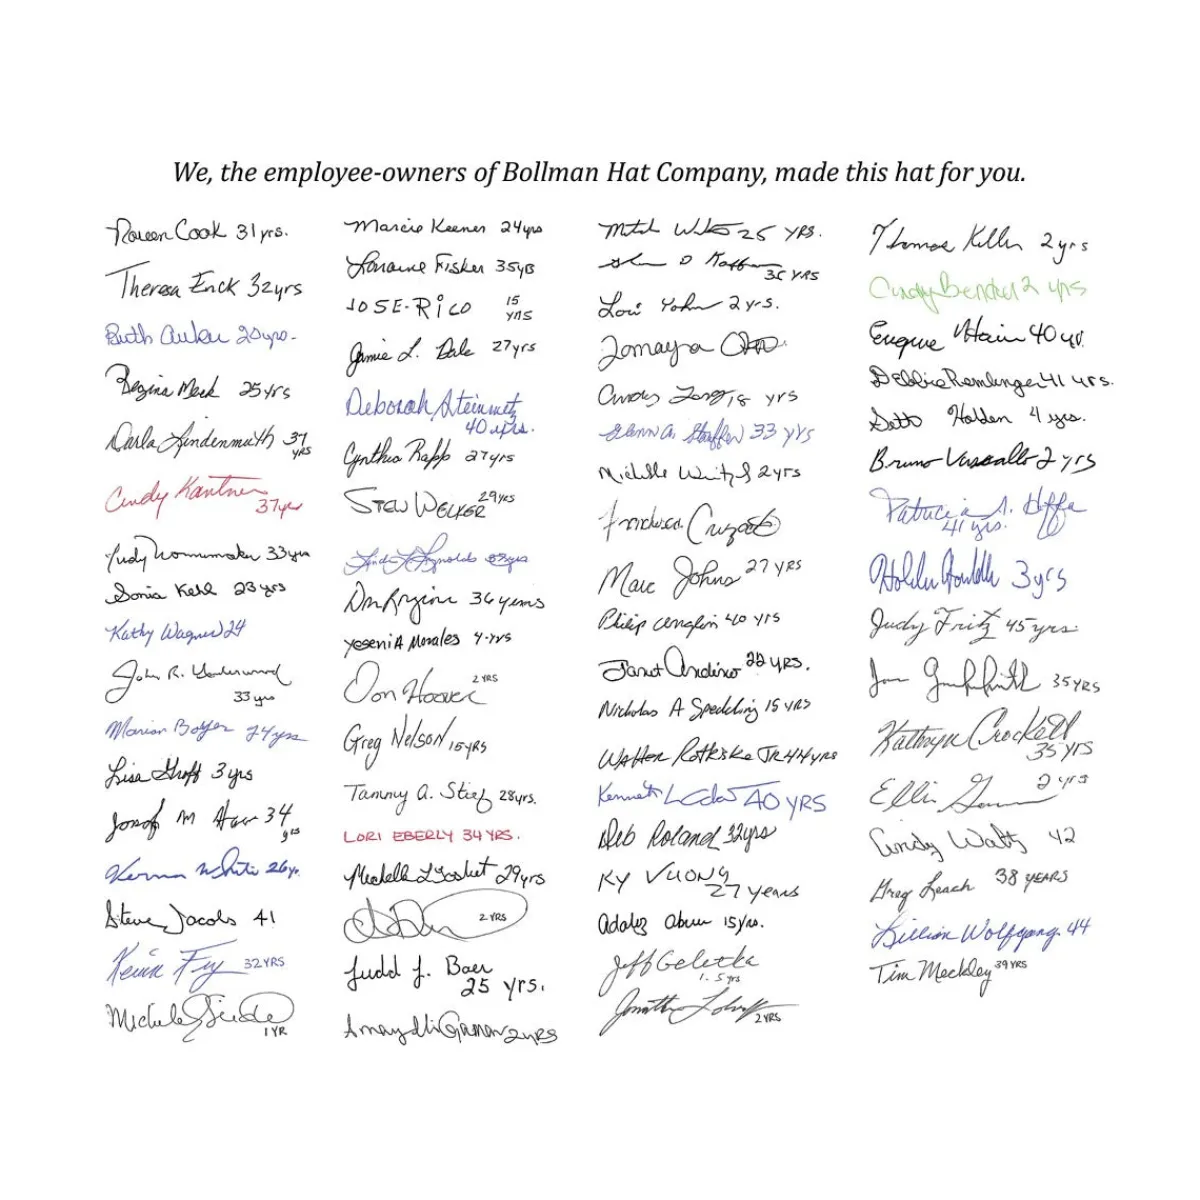 We, the employee-owners of Bollman Hat Company, made this hat for you.
Cook 31 yrs.
Theresa Enck 32 yrs
Ruth Auker 20 yrs.
Regina Mack 25 yrs
Darla Lindenmuth 37
yrs
Cindy Kantner
37 yrs
Judy 33 yrs
Sonia Kehl 23 yrs
Kathy Wagner 24
John R.
33 yrs
Marian Boyer 24 yrs
Lisa Groff 3 yrs
Josef M 34
yrs
White 26 yr.
Steve Jacobs 41
Kevin Fry 32 YRS
Michele
1 YR
Marcie Keener 24 yrs
Lorraine Fisher 35 yrs
JOSE-RICO 15
YRS
Jamie L. Dale 27 yrs
Deborah Steinmetz
40 yrs.
Cynthia Rapp 27 yrs
STEW WELKER 29 YRS
Reynolds
36 years
YeseniA Morales 4 yrs
Don Hoover 2 YRS
Greg Nelson 15 YRS
Tammy A. Stief 28 yrs.
LORI EBERLY 34 YRS.
Michelle L 29 yrs
2 YRS
Judd J. Baer
25 yrs.
2 YRS
Mitch 25 YRS.
YRS
Lori Yohn 2 yrs.
Zomaya
Cindy 18 yrs
Glenn A. Stauffer 33 yrs
Michelle 2 yrs
Francisca
Marc Johns 27 YRS
Philip 40 yrs
Janet Andino 22 YRS.
Nicholas A Spedding 15 YRS
Walter Rothiske JR 44 yrs
Kenneth 40 YRS
Deb Roland 32 yrs
KY VUONG
27 years
15 yrs.
Jeff Geletka
1.5 yrs
Jonathan
2 YRS
Thomas Killer 2 yrs
Cindy 2 yrs
Eugene 40 yr.
Debbie Remlinger 41 yrs.
Holden 4 yrs.
Bruno Vassallo 2 yrs
Patricia A. Hoffa
41 yrs.
3 yrs
Judy Fritz 45 yrs.
35 YRS
Kathryn Crockett
35 YRS
Ellis 2 yrs
Cindy Watts 42
Greg Leach 38 YEARS
Lillian Wolfgang 44
Tim Meckley 39 YRS